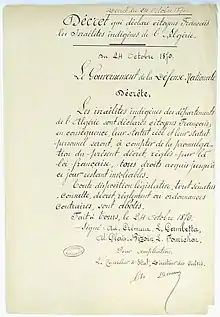 Décret du 24 Octobre 1870.
Décret qui déclare citoyens français
les Israélites indigènes de l'Algérie.
du 24 Octobre 1870.
Le Gouvernement de la Défense Nationale
Décrète.
Les israélites indigènes des départements
de l'Algérie sont déclarés citoyens français;
en conséquence, leur statut réel et leur statut
personnel seront, à compter de la promulga-
tion du présent décret, réglés par la
loi française, tous droits acquis jusqu'à
ce jour restant inviolables.
Toute disposition législative, tout sénatus
consulte, décret, règlement ou ordonnance
contraires, sont abolis.
Fait à Tours, le 24 Octobre 1870.
Signé: Ad. Crémieux, L. Gambetta,
Al. Glais-Bizoin, L. Fourichon.
Pour ampliation:
Le Conseiller d'Etat,